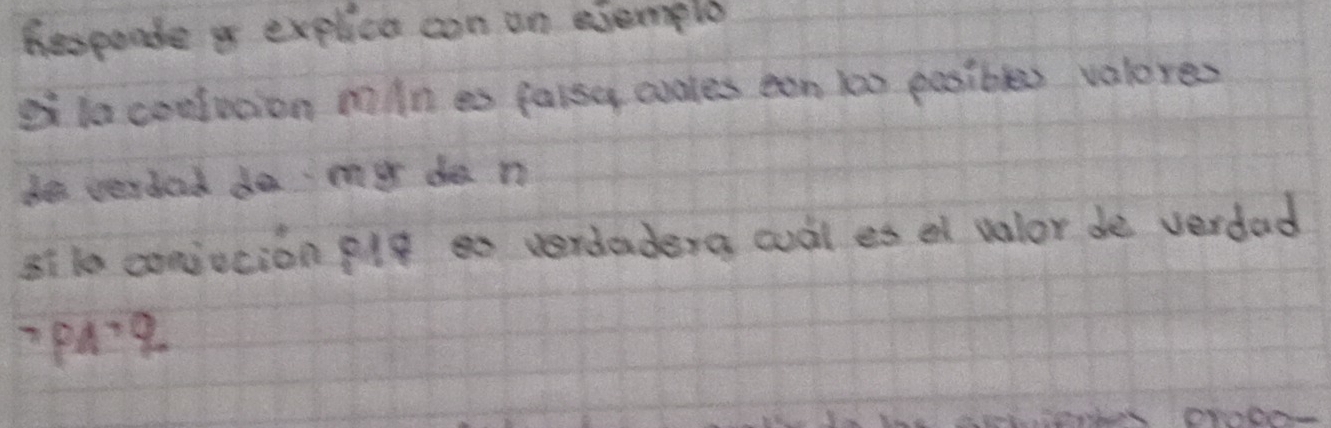 Responde y explica con un ejemplo
si la conjucion m∧n es falsa, cuales son los posibles valores
de verdad de m y de n
si la conjución p∧q es verdadera cuál es el valor de verdad
¬p∧¬q